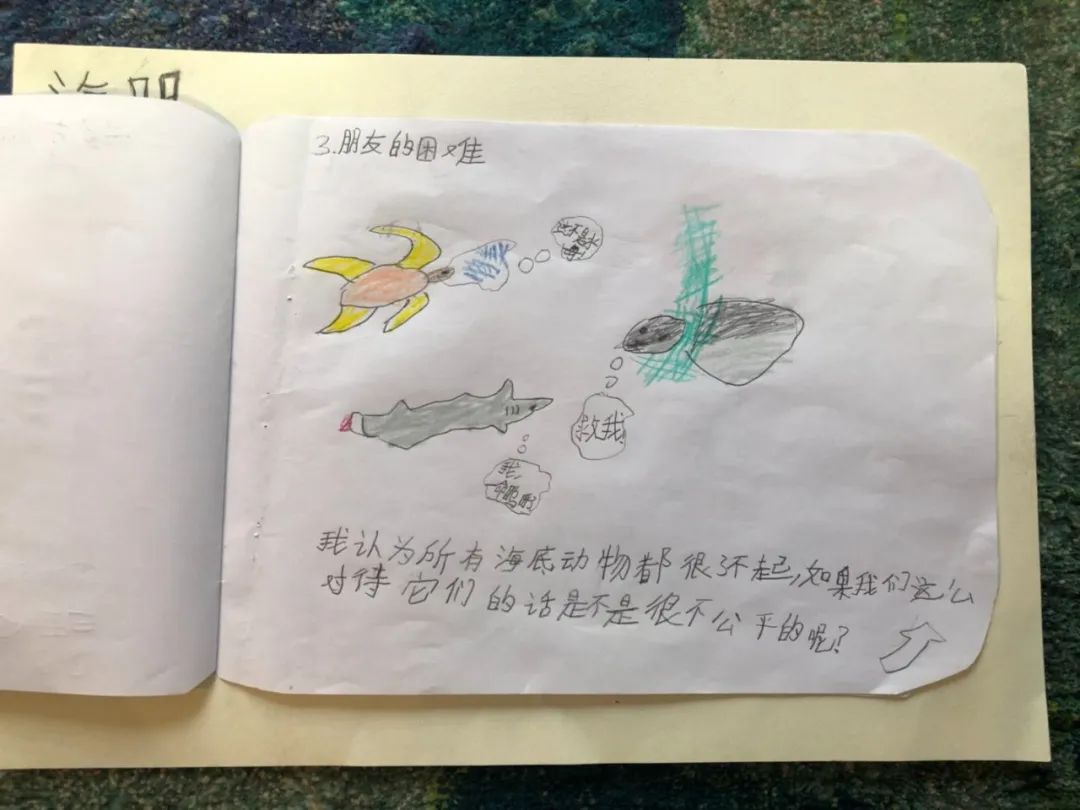 3.朋友的困难
这不是水
母!
救我!
我,
我认为所有海底动物都很了不起,如果我们这么
对待它们的话是不是很不公平的呢?